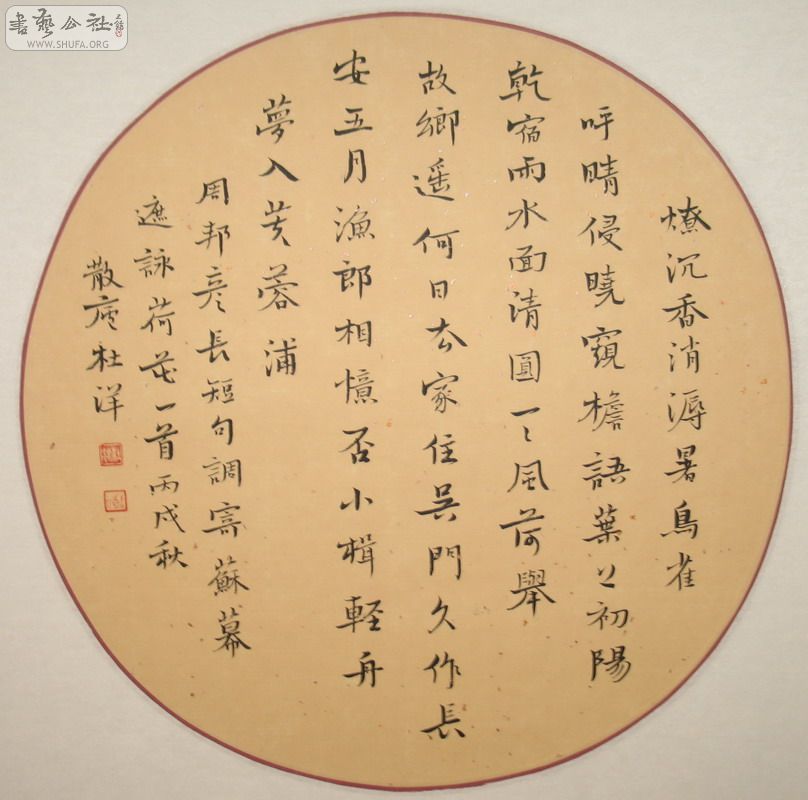 書藝公社
WWW.SHUFA.ORG
燎沉香消溽暑鳥雀
呼晴侵曉窺檐語葉上初陽
乾宿雨水面清圓一〻風荷舉
故鄉遥何日去家住吴門久作長
安五月漁郎相憶否小楫輕舟
夢入芙蓉浦
周邦彦長短句調寄蘇幕
遮詠荷花一首丙戌秋
散廬杜洋